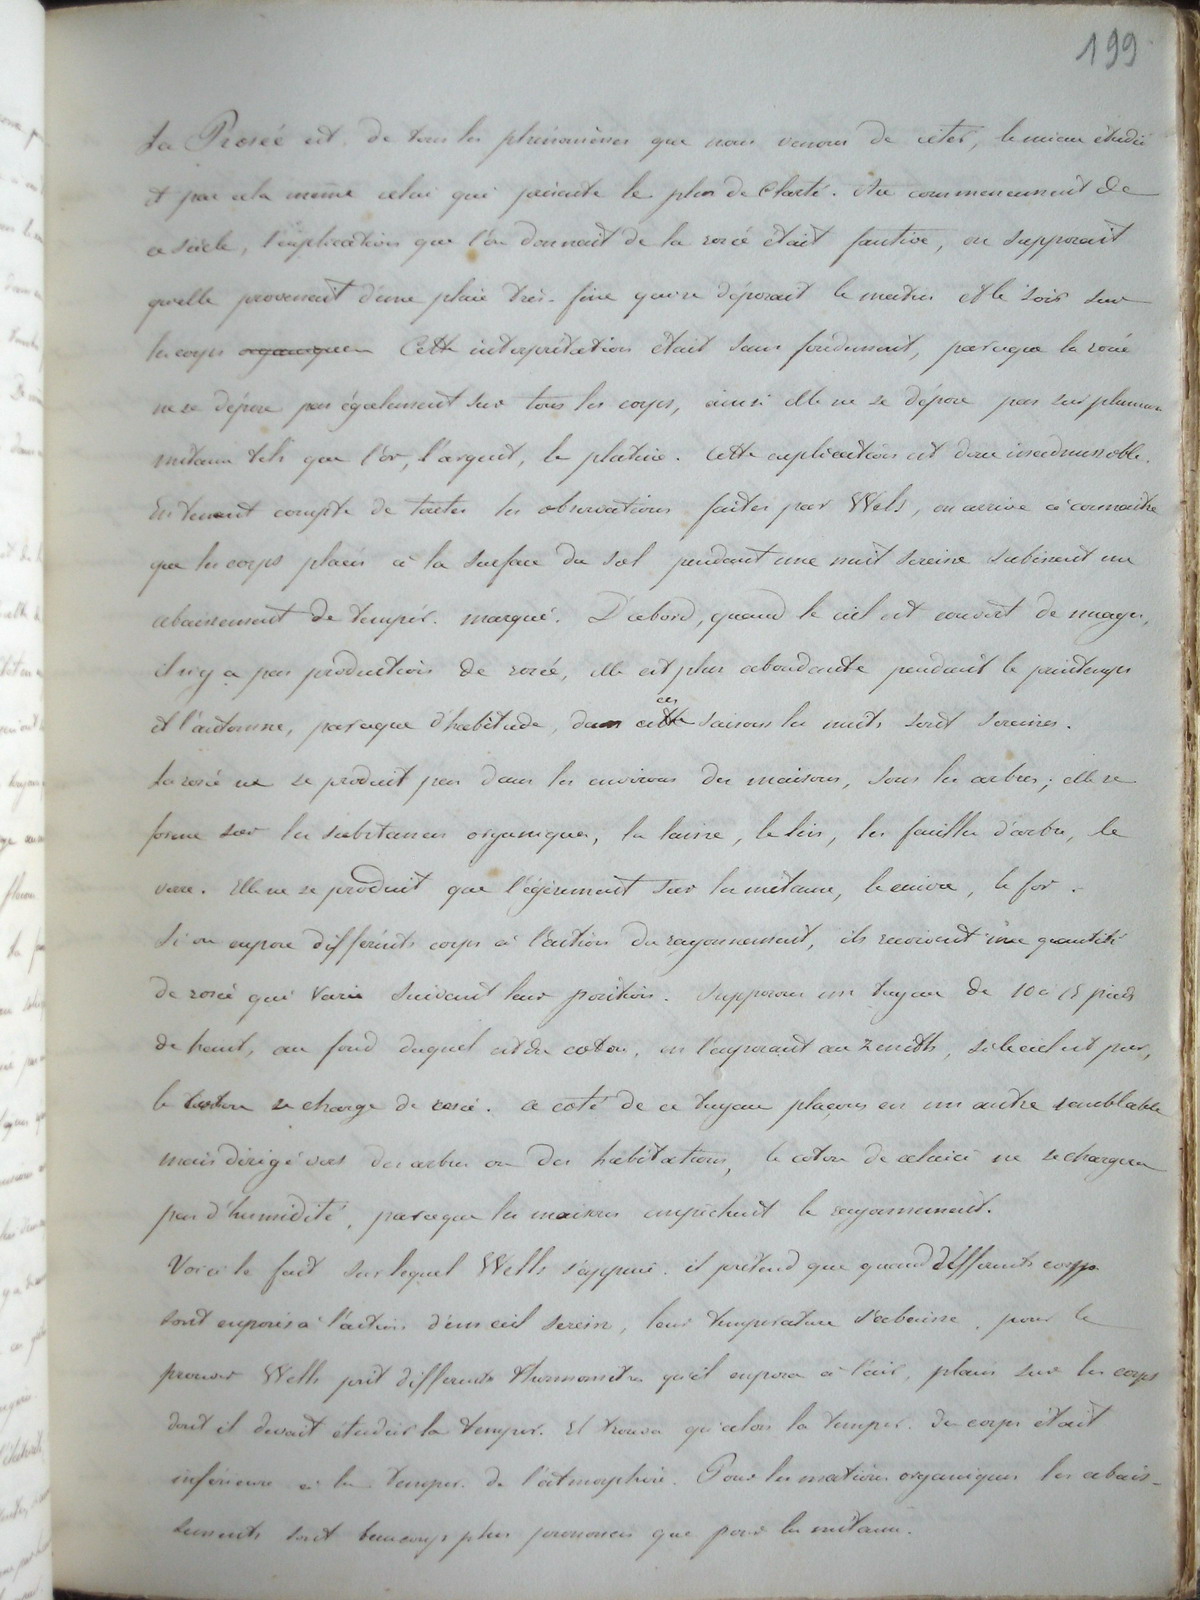 199
La Rosée est, de tous les phénomènes que nous venons de citer, le mieux étudié
et par cela même celui qui présente le plus de clarté. Au commencement de
ce siècle, l'explication que l'on donnait de la rosée était fautive, on supposait
qu'elle provenait d'une pluie très-fine qui se déposait le matin et le soir sur
les corps organiques Cette interprétation était sans fondement, parceque la rosée
ne se dépose pas également sur tous les corps, ainsi elle ne se dépose pas sur plusieurs
métaux tels que l'or, l'argent, le platine. Cette explication est donc inadmissible.
En tenant compte de toutes les observations faites par Wels, on arrive à connaitre
que les corps placés à la surface du sol pendant une nuit sereine subissent un
abaissement de tempér. marqué. D'abord, quand le ciel est couvert de nuages,
il n'y a pas production de rosée, elle est plus abondante pendant le printemps
et l'automne, parceque d'habitude, dans ces cette saisons les nuits sont sereines.
La rosée ne se produit pas dans les environs des maisons, sous les arbres; elle se
forme sur les substances organiques, la laine, le lin, les feuilles d'arbre, le
verre. Elle ne se produit que légèrement sur les métaux, le cuivre, le fer.
Si on expose différents corps à l'action du rayonnement, ils reçoivent une quantité
de rosée qui varie suivant leur position. Supposons un tuyau de 10 à 15 pieds
de haut, au fond duquel est du coton, en l'exposant au zénith, si le ciel est pur,
le coton se charge de rosée. a coté de ce tuyau plaçons en un autre semblable
mais dirigé vers des arbres ou des habitations, le coton de celui ci ne se chargera
pas d'humidité, parceque les maisons empêchent le rayonnement.
Voici le fait sur lequel Wells s'appuie. il prétend que quand différents corps
sont exposés à l'action d'un ciel serein, leur température s'abaisse. pour le
prouver Wells prit différents thermomètres qu'il exposa à l'air, placés sur les corps
dont il devait étudier la tempér. Il trouva qu'alors la tempér. du corps était
inférieure à la temper. de l'atmosphère. Pour les matières organiques les abais-
sements sont beaucoup plus prononcés que pour les métaux.